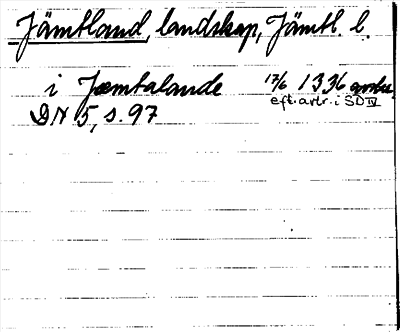 Jämtland, landskap, Jämtl. l.
i Jæmtalande 17/6 1336 avskr.
eft. avtr. i SD IV
DN 5, s. 97